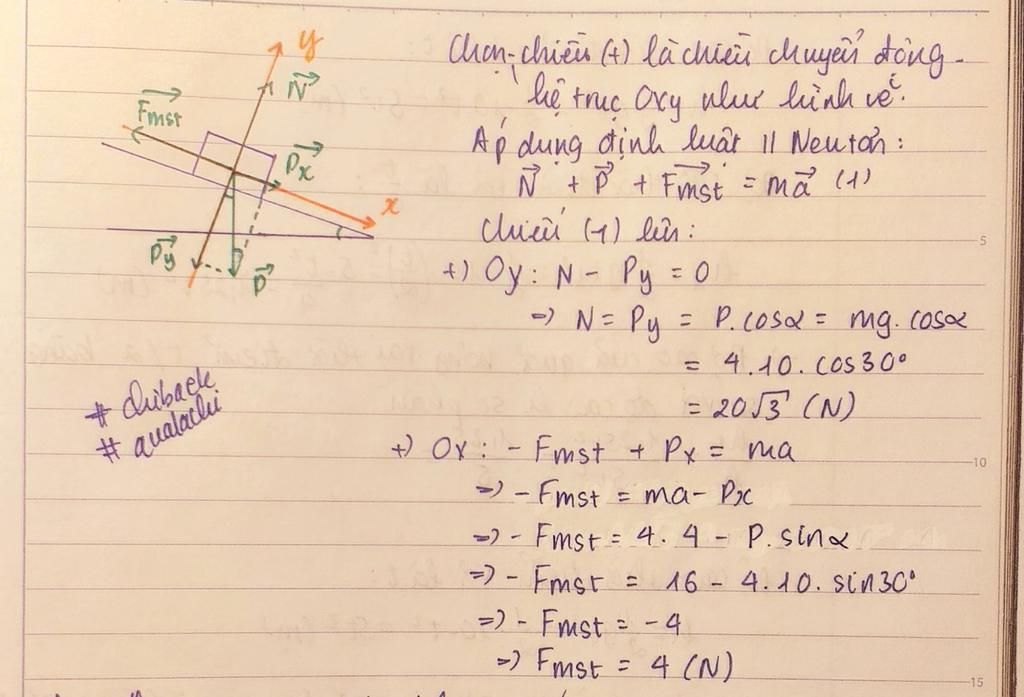 y
N
Fmst
Px
x
Py
P
# chiback
# aualachi
Chọn chiều (+) là chiều chuyển động.
hệ trục Oxy như hình vẽ.
Áp dụng định luật II Newton:
N + P + Fmst = ma (1)
Chiếu (1) lên:
+) Oy: N - Py = 0
=) N = Py = P.cosα = mg.cosα
= 4.10.cos30°
= 20√3 (N)
+) Ox: - Fmst + Px = ma
=) - Fmst = ma - Px
=) - Fmst = 4.4 - P.sinα
=) - Fmst = 16 - 4.10.sin30°
=) - Fmst = -4
=) Fmst = 4 (N)
5
10
15